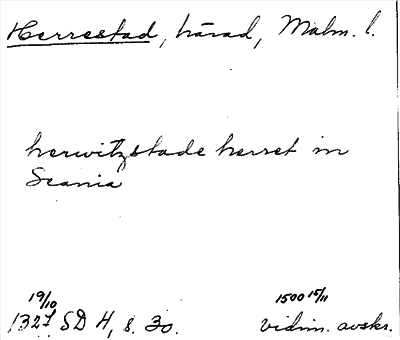 Herrestad, härad, Malm. l.
herwitzstade herret in
Scania
19/10 1500 15/11
1327 SD 4, s. 30. vidim. avskr.